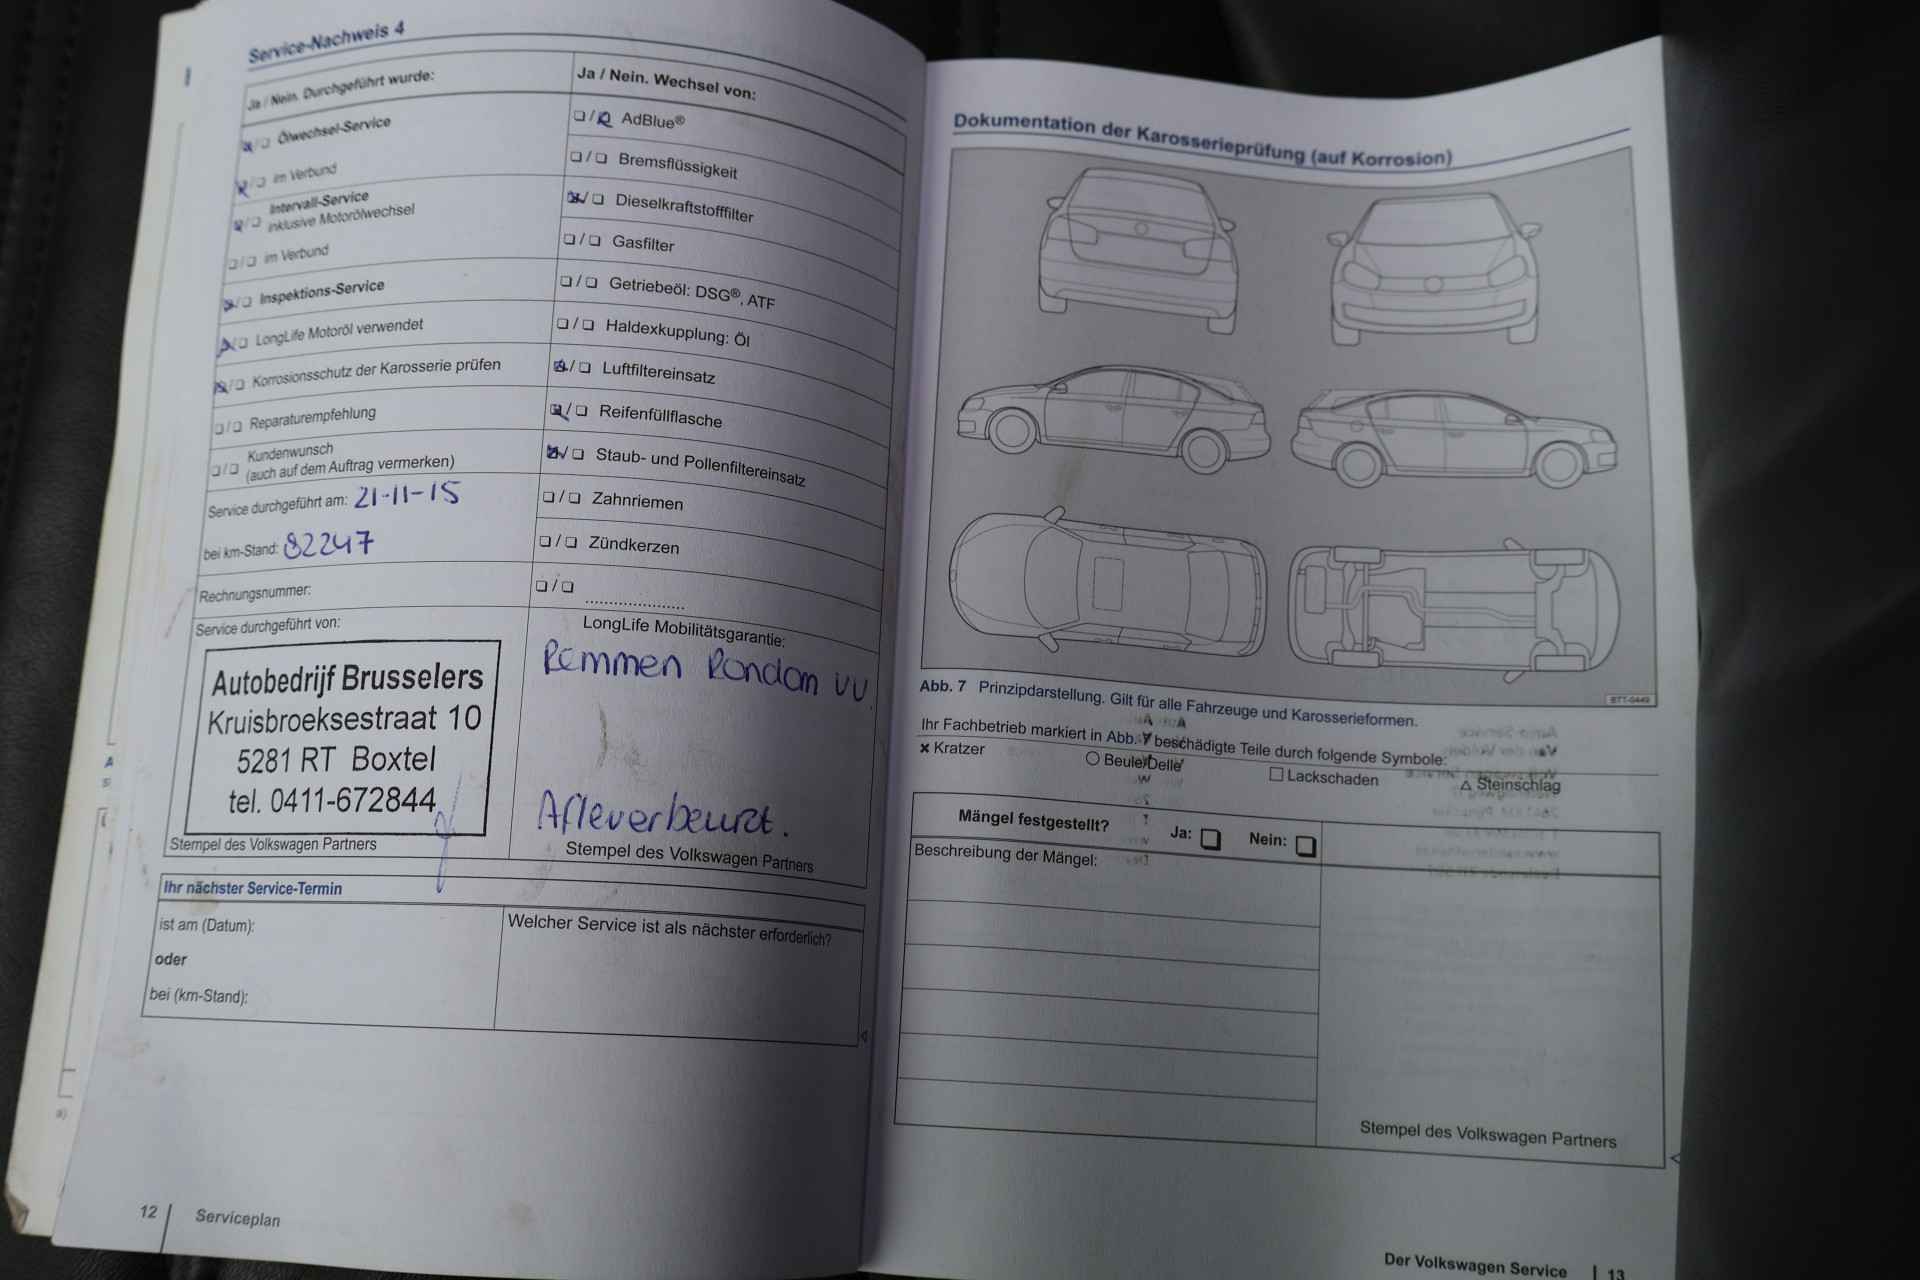 Service-Nachweis 4
Ja / Nein. Durchgeführt wurde:
Ölwechsel-Service
im Verbund
Intervall-Service
inklusive Motorölwechsel
im Verbund
Inspektions-Service
LongLife Motoröl verwendet
Korrosionsschutz der Karosserie prüfen
Reparaturempfehlung
Kundenwunsch
(auch auf dem Auftrag vermerken)
Service durchgeführt am: 21-11-15
bei km-Stand: 82247
Rechnungsnummer:
Service durchgeführt von:
Autobedrijf Brusselers
Kruisbroeksestraat 10
5281 RT Boxtel
tel. 0411-672844
Stempel des Volkswagen Partners
Ja / Nein. Wechsel von:
AdBlue®
Bremsflüssigkeit
Dieselkraftstofffilter
Gasfilter
Getriebeöl: DSG®, ATF
Haldexkupplung: Öl
Luftfiltereinsatz
Reifenfüllflasche
Staub- und Pollenfiltereinsatz
Zahnriemen
Zündkerzen
LongLife Mobilitätsgarantie:
Remmen Rondom VV.
Afleverbeurt.
Stempel des Volkswagen Partners
Ihr nächster Service-Termin
ist am (Datum):
oder
bei (km-Stand):
Welcher Service ist als nächster erforderlich?
12 Serviceplan
Dokumentation der Karosserieprüfung (auf Korrosion)
BTT-0449
Abb. 7 Prinzipdarstellung. Gilt für alle Fahrzeuge und Karosserieformen.
Ihr Fachbetrieb markiert in Abb. 7 beschädigte Teile durch folgende Symbole:
× Kratzer
○ Beule/Delle
□ Lackschaden
△ Steinschlag
Mängel festgestellt? Ja: Nein:
Beschreibung der Mängel:
Stempel des Volkswagen Partners
Der Volkswagen Service 13